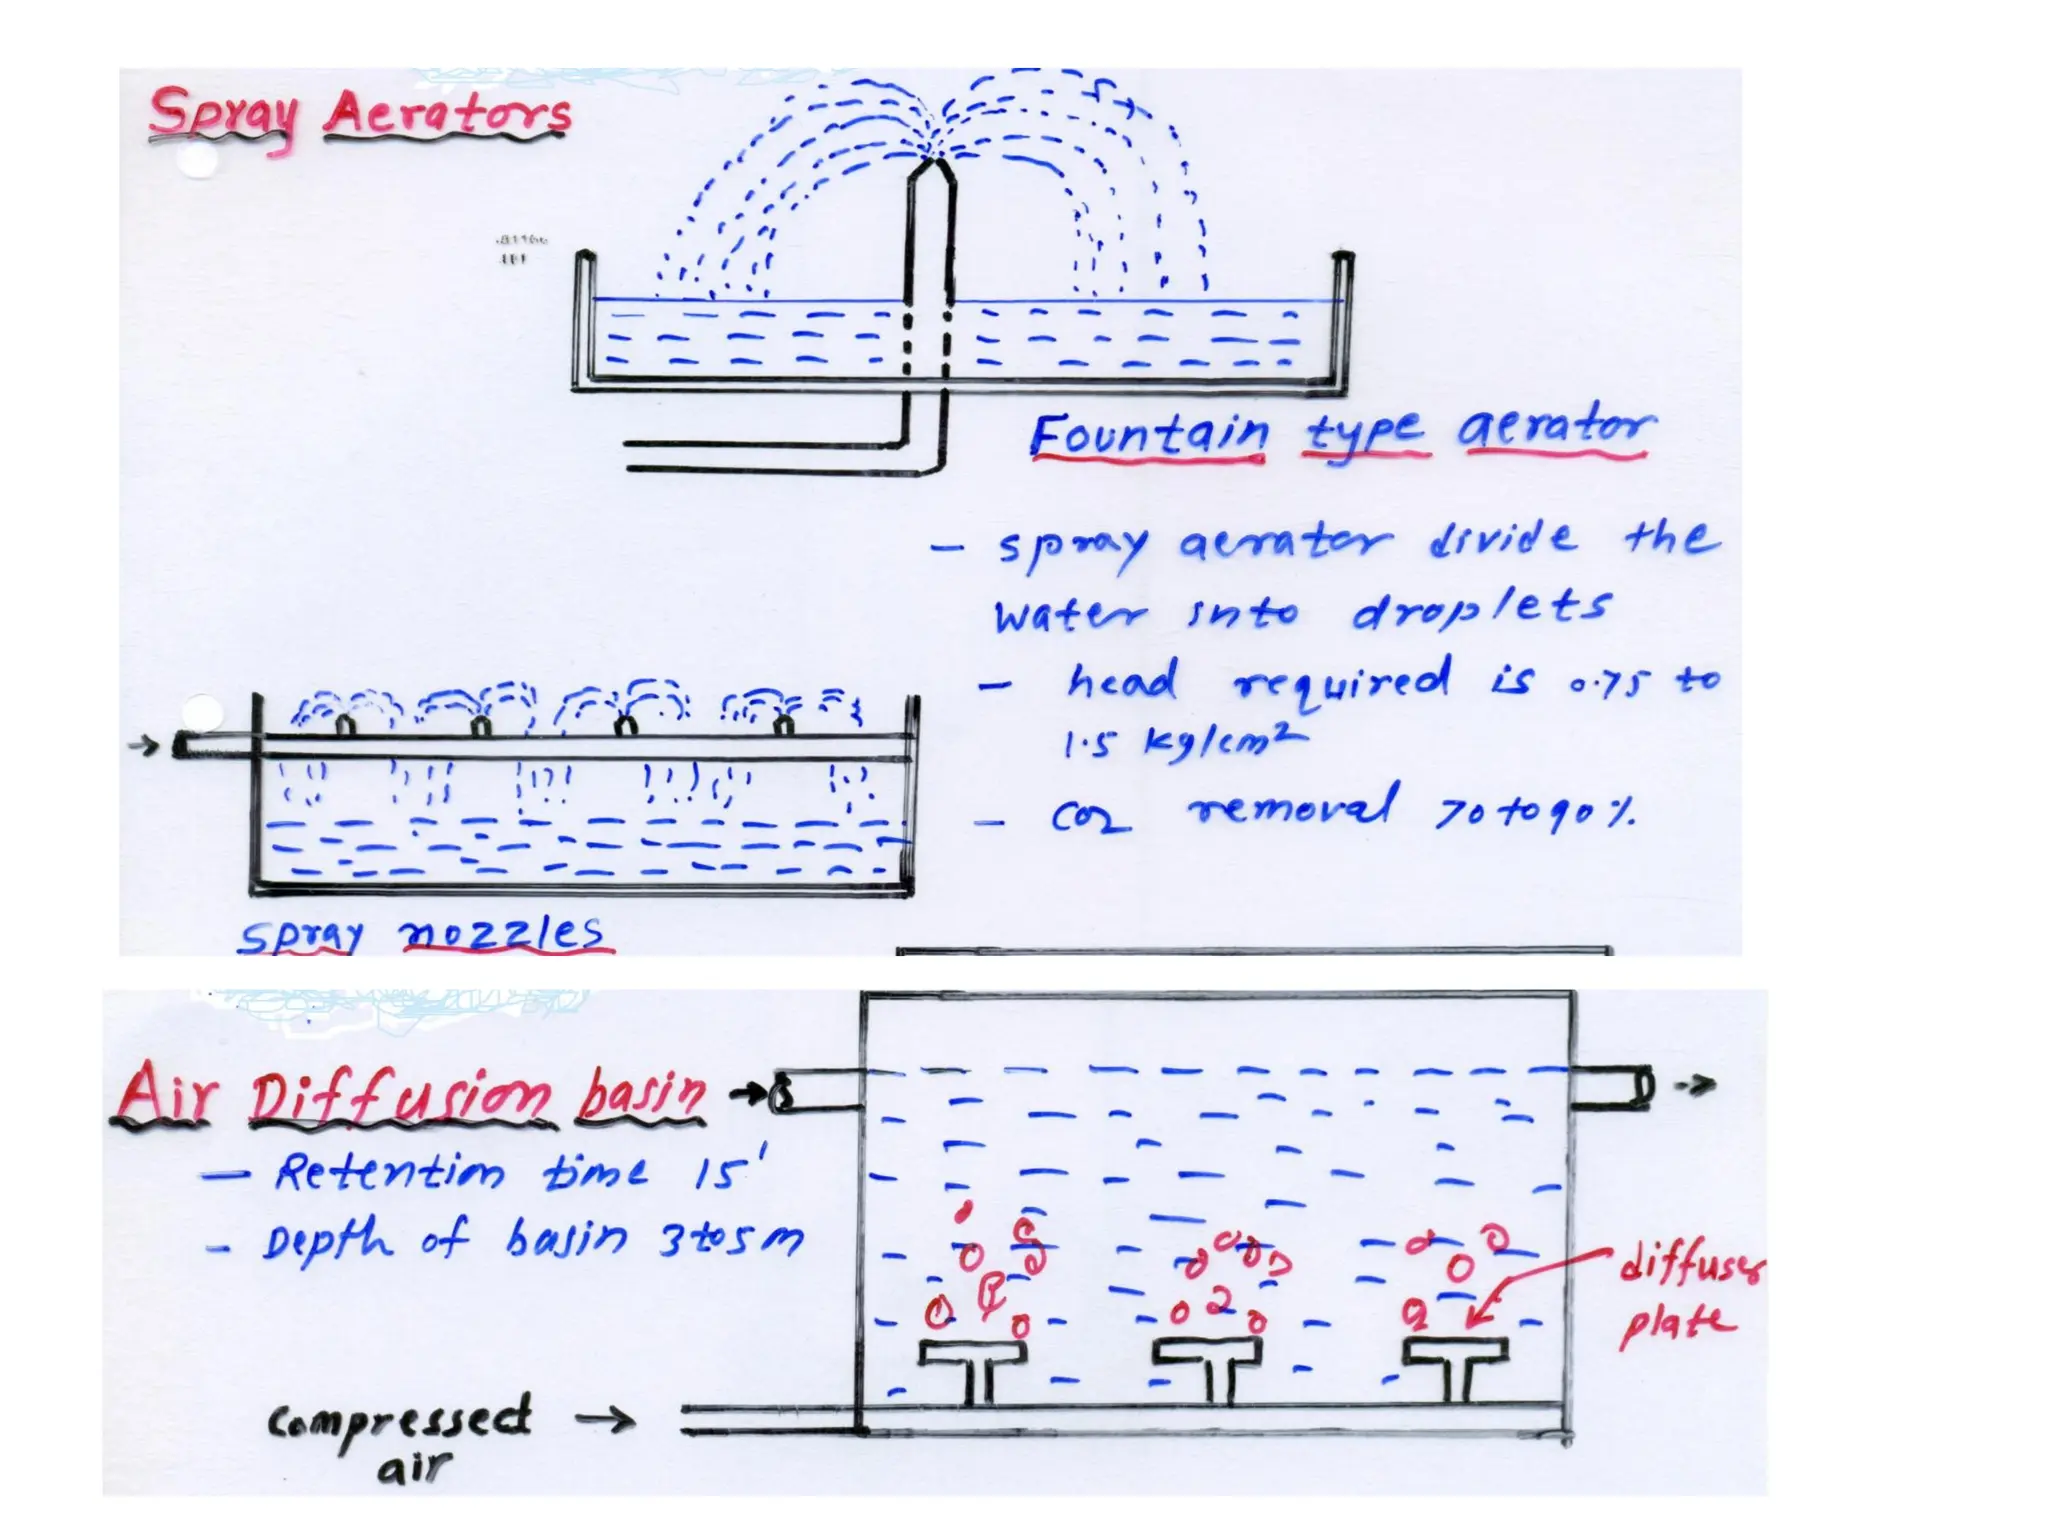 Spray Aerators
Fountain type aerator
– spray aerator divide the
water into droplets
– head required is 0.75 to
1.5 kg/cm²
– CO2 removal 70 to 90%.
spray nozzles
Air Diffusion basin
– Retention time 15'
– Depth of basin 3 to 5 m
diffuser
plate
compressed
air